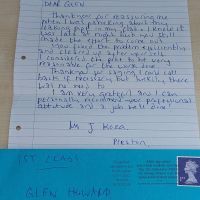 DEAR GLEN
Thankyou for reassuring me
when I was panicking about my
leaking pipe in my flat. I knew it
was late at night but you still
made the effort to come out.
You fixed the problem efficiently
and cleaned up after yourself.
I considered the price to be very
reasonable for the work done.
Thankyou for saying I could call
back if necessary but luckily there
was no need to.
I am very grateful and I can
personally recommend your exceptional
attitude and a job well done!
Mr J Kora
Preston
1ST CLASS
GLEN HOWARD